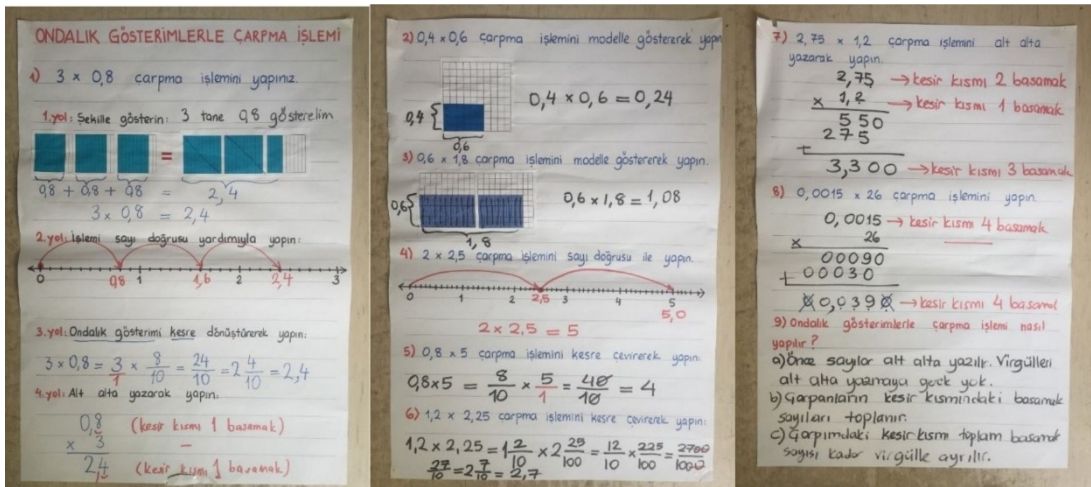 ONDALIK GÖSTERİMLERLE ÇARPMA İŞLEMİ
1) 3 x 0,8 çarpma işlemini yapınız.
1.yol: Şekille gösterin: 3 tane 0,8 gösterelim
=
0,8 + 0,8 + 0,8 = 2,4
3 x 0,8 = 2,4
2.yol: İşlemi sayı doğrusu yardımıyla yapın:
0 0,8 1 1,6 2 2,4 3
3.yol: Ondalık gösterimi kesre dönüştürerek yapın:
3 x 0,8 = 3/1 x 8/10 = 24/10 = 2 4/10 = 2,4
4.yol: Alt alta yazarak yapın:
0,8 (kesir kısmı 1 basamak)
x 3 –
2,4 (kesir kısmı 1 basamak)
2) 0,4 x 0,6 çarpma işlemini modelle göstererek yapın
0,4
0,4 x 0,6 = 0,24
0,6
3) 0,6 x 1,8 çarpma işlemini modelle göstererek yapın.
0,6
0,6 x 1,8 = 1,08
1,8
4) 2 x 2,5 çarpma işlemini sayı doğrusu ile yapın.
0 1 2 2,5 3 4 5
5,0
2 x 2,5 = 5
5) 0,8 x 5 çarpma işlemini kesre çevirerek yapın:
0,8x5 = 8/10 x 5/1 = 40/10 = 4
6) 1,2 x 2,25 çarpma işlemini kesre çevirerek yapın:
1,2 x 2,25 = 1 2/10 x 2 25/100 = 12/10 x 225/100 = 2700/1000
27/10 = 2 7/10 = 2,7
7) 2,75 x 1,2 çarpma işlemini alt alta
yazarak yapın.
2,75 → kesir kısmı 2 basamak
x 1,2 → kesir kısmı 1 basamak
550
275
+
3,300 → kesir kısmı 3 basamak
8) 0,0015 x 26 çarpma işlemini yapın.
0,0015 → kesir kısmı 4 basamak
x 26
00090
+ 00030
00,0390 → kesir kısmı 4 basamak
9) Ondalık gösterimlerle çarpma işlemi nasıl
yapılır?
a) Önce sayılar alt alta yazılır. Virgülleri
alt alta yazmaya gerek yok.
b) Çarpanların kesir kısmındaki basamak
sayıları toplanır.
c) Çarpımdaki kesir kısmı toplam basamak
sayısı kadar virgülle ayrılır.